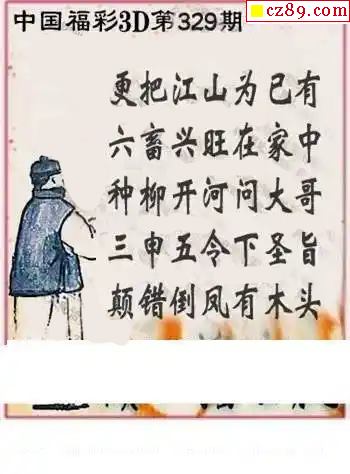 cz89.com
中国福彩3D第329期
更把江山为已有
六畜兴旺在家中
种柳开河问大哥
三申五令下圣旨
颠错倒凤有木头